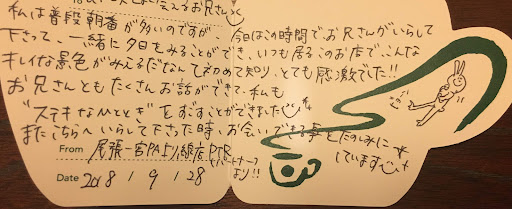 言えるお兄さん
私は普段朝番が多いのですが、今日はこの時間で、お兄さんがいらして
下さって、一緒に夕日をみることができ、いつも居るこのお店で、こんな
キレイな景色がみえるだなんて初めて知り、とても感激でした!!
お兄さんともたくさんお話ができて、私も
"ステキなひととき"をすごすことができました
またこちらへいらして下さった時、お会いできる事をたのしみに
しています
From 尾張一宮PA上り線店PTR
(パートナー)より!!
Date 2018/9/28